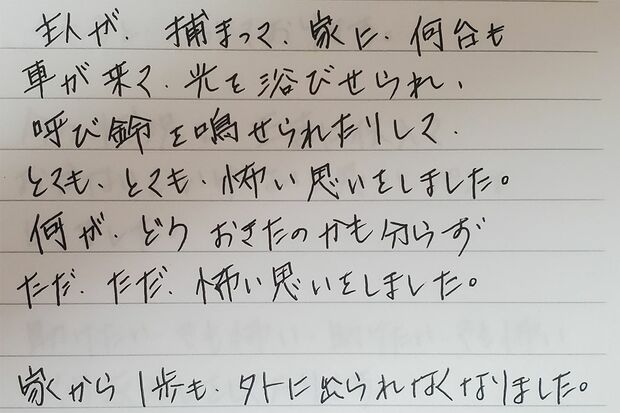 主人が、捕まって、家に、何台も
車が来て、光を浴びせられ、
呼び鈴を鳴せられたりして、
とても、とても、怖い思いをしました。
何が、どう おきたのかも分らず
ただ、ただ、怖い思いをしました。
家から1歩も、外に出られなくなりました。